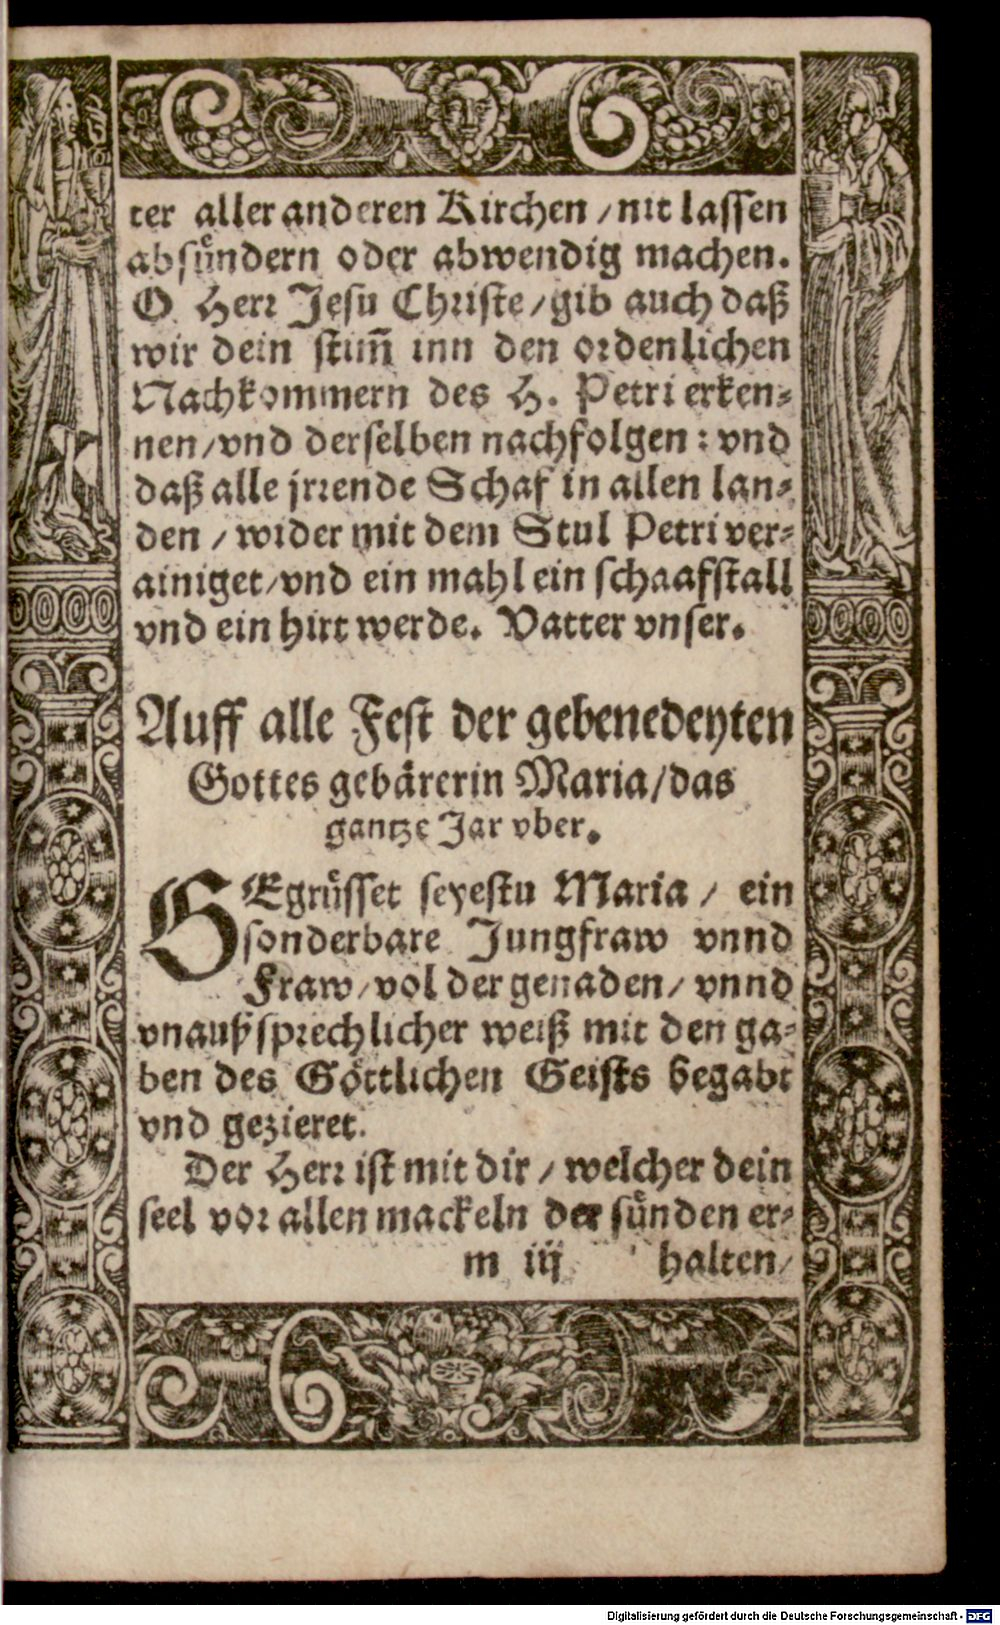 ter aller anderen Kirchen / nit lassen
absündern oder abwendig machen.
O Herr Jesu Christe / gib auch daß
wir dein stim̃ inn den ordenlichen
Nachkommern des H. Petri erken-
nen / vnd derselben nachfolgen: vnd
daß alle jrrende Schaf in allen lan-
den / wider mit dem Stul Petri ver-
ainiget / vnd ein mahl ein schaafstall
vnd ein hirt werde. Vatter vnser.
Auff alle Fest der gebenedeyten
Gottes gebärerin Maria / das
gantze Jar vber.
GEgrüsset seyestu Maria / ein
sonderbare Jungfraw vnnd
Fraw / vol der genaden / vnnd
vnaußsprechlicher weiß mit den ga-
ben des Göttlichen Geists begabt
vnd gezieret.
Der Herr ist mit dir / welcher dein
seel vor allen mackeln der sünden er-
m iij halten /
Digitalisierung gefördert durch die Deutsche Forschungsgemeinschaft - DFG